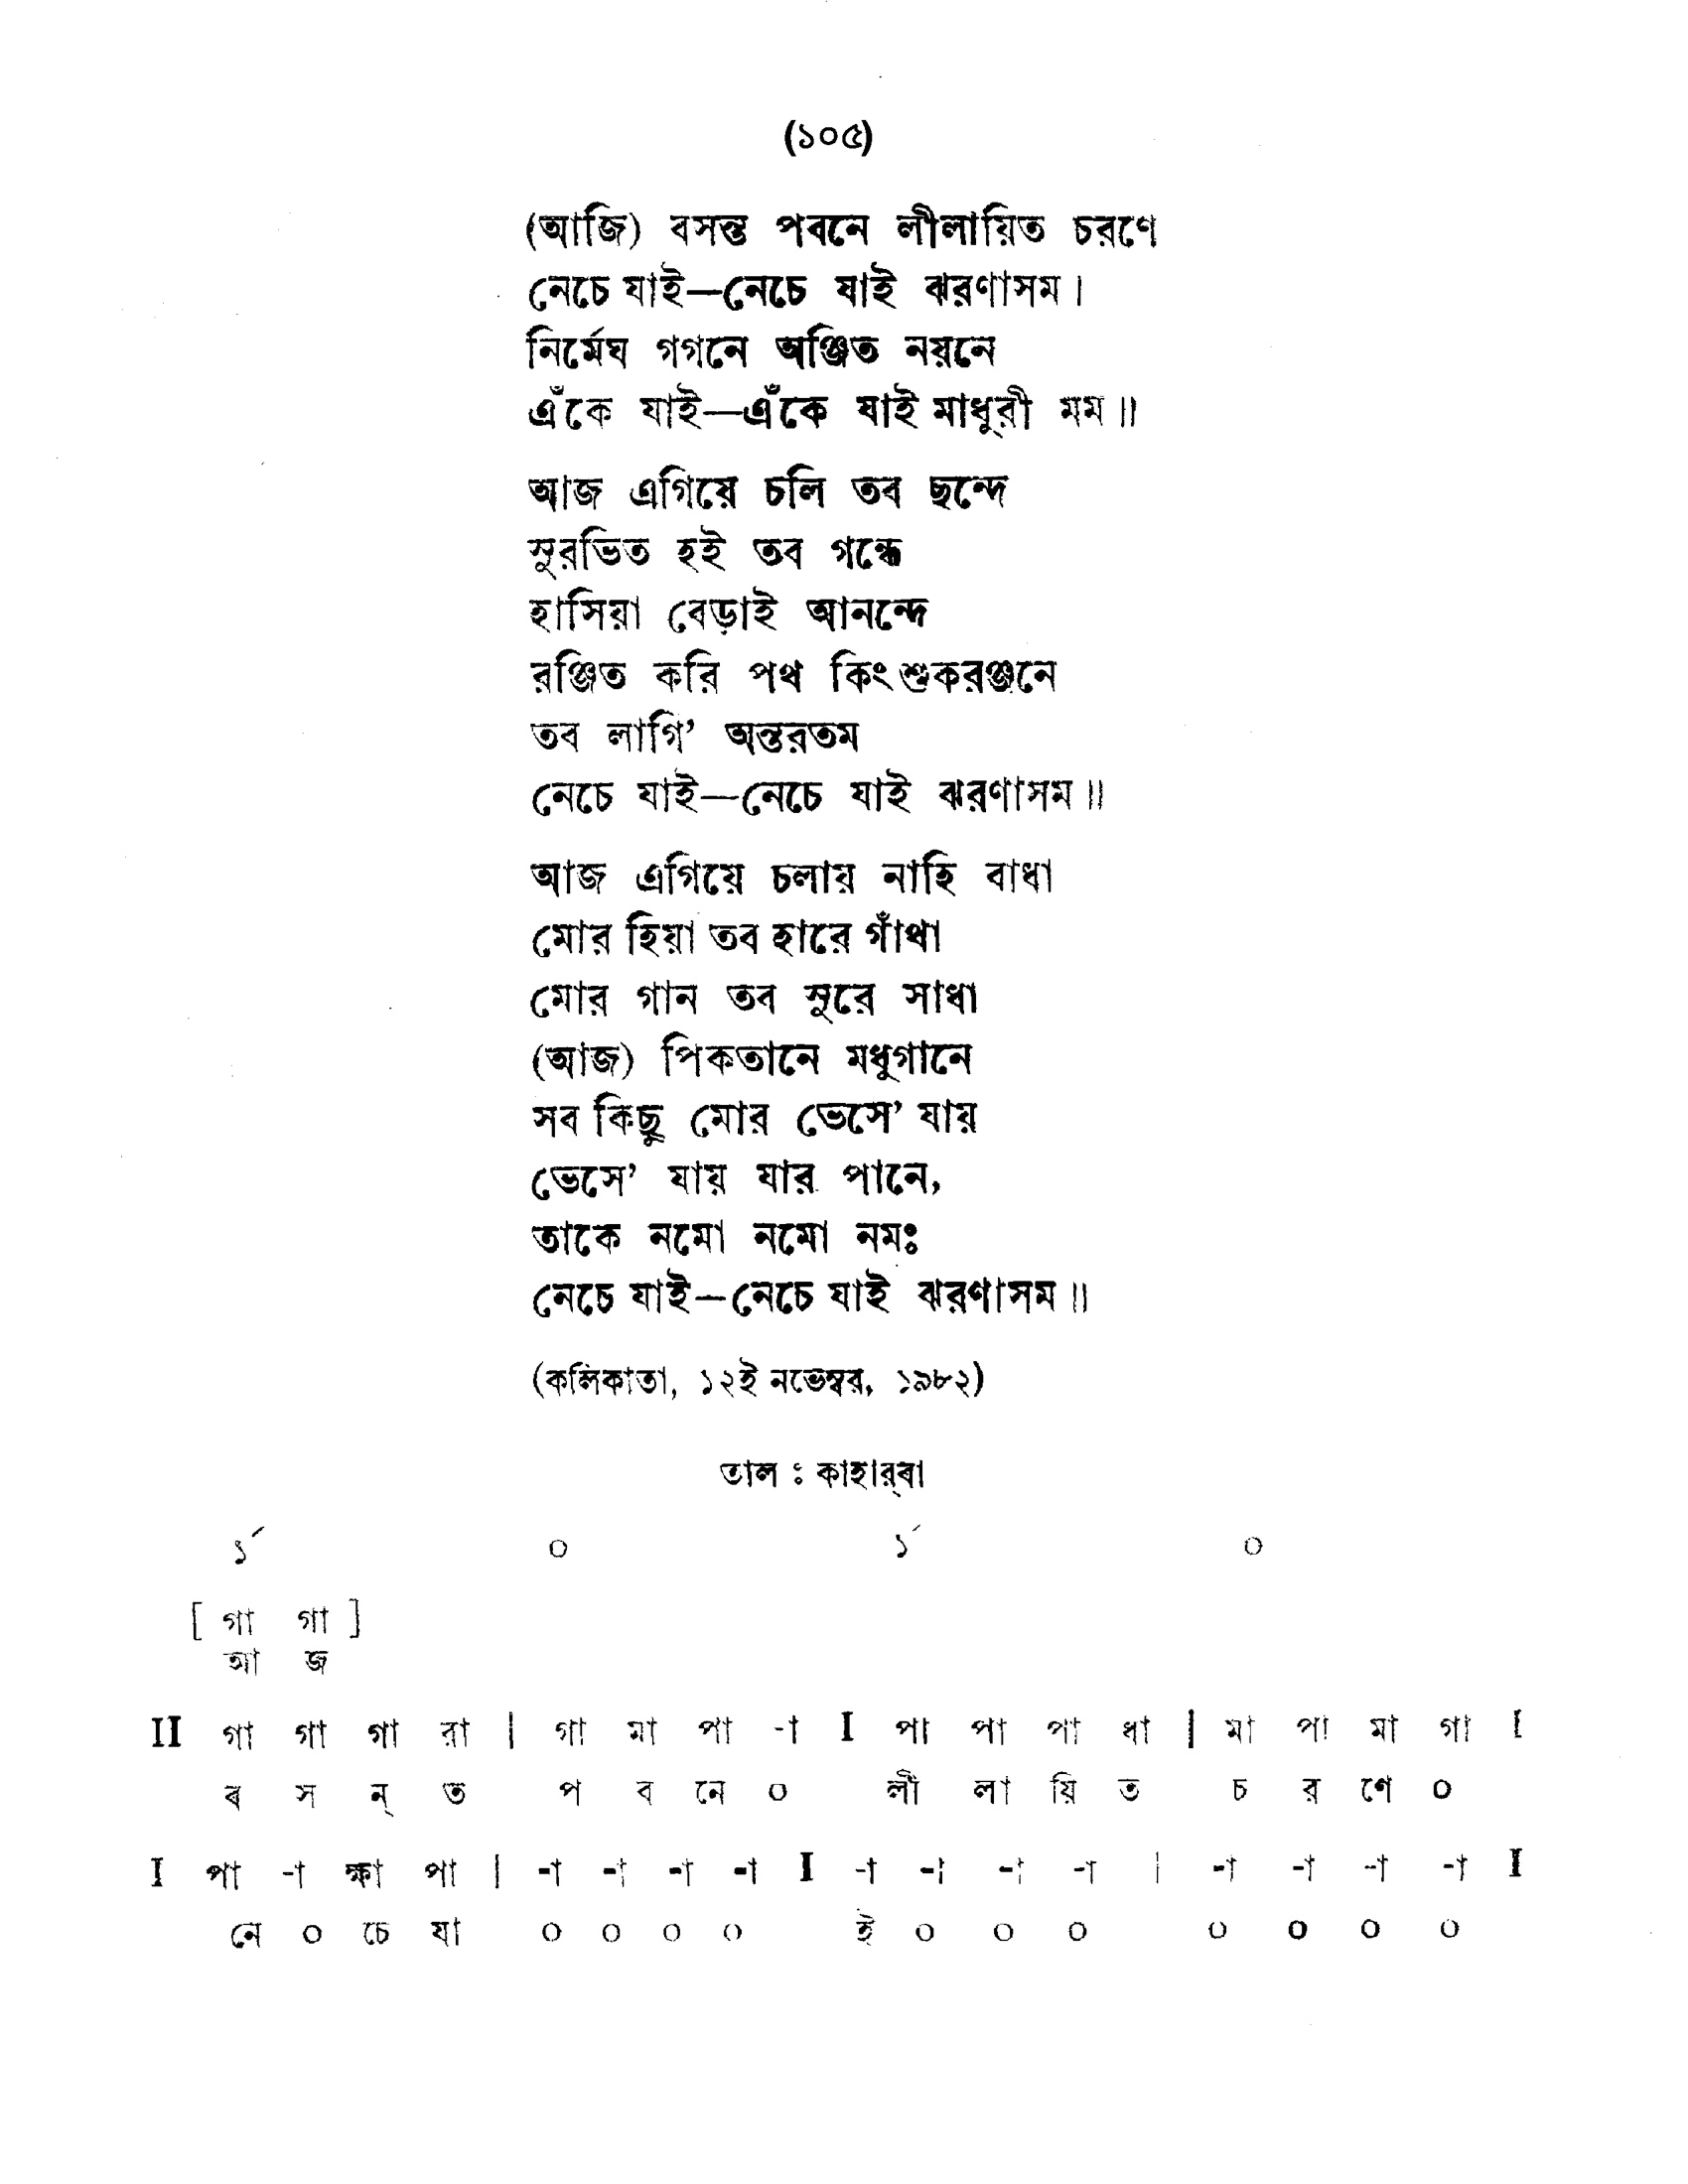 (১০৫)
(আজি) বসন্ত পবনে লীলায়িত চরণে
নেচে যাই—নেচে যাই ঝরণাসম।
নির্মেঘ গগনে অঞ্জিত নয়নে
এঁকে যাই—এঁকে যাই মাধুরী মম॥
আজ এগিয়ে চলি তব ছন্দে
সুরভিত হই তব গন্ধে
হাসিয়া বেড়াই আনন্দে
রঞ্জিত করি পথ কিংশুকরঞ্জনে
তব লাগি’ অন্তরতম
নেচে যাই—নেচে যাই ঝরণাসম॥
আজ এগিয়ে চলায় নাহি বাধা
মোর হিয়া তব হারে গাঁথা
মোর গান তব সুরে সাধা
(আজ) পিকতানে মধুগানে
সব কিছু মোর ভেসে’ যায়
ভেসে’ যায় যার পানে,
তাকে নমো নমো নমঃ
নেচে যাই—নেচে যাই ঝরণাসম॥
(কলিকাতা, ১২ই নভেম্বর, ১৯৮২)
তাল ঃ কাহার্‌বা
১´ ০ ১´ ০
[ গা গা ]
আ জ
II গা গা গা রা | গা মা পা -া I পা পা পা ধা | মা পা মা গা I
ব স ন্ ত প ব নে ০ লী লা য়ি ত চ র ণে ০
I পা -া ক্ষা পা | -া -া -া -া I -া -া -া -া | -া -া -া -া I
নে ০ চে যা ০ ০ ০ ০ ই ০ ০ ০ ০ ০ ০ ০